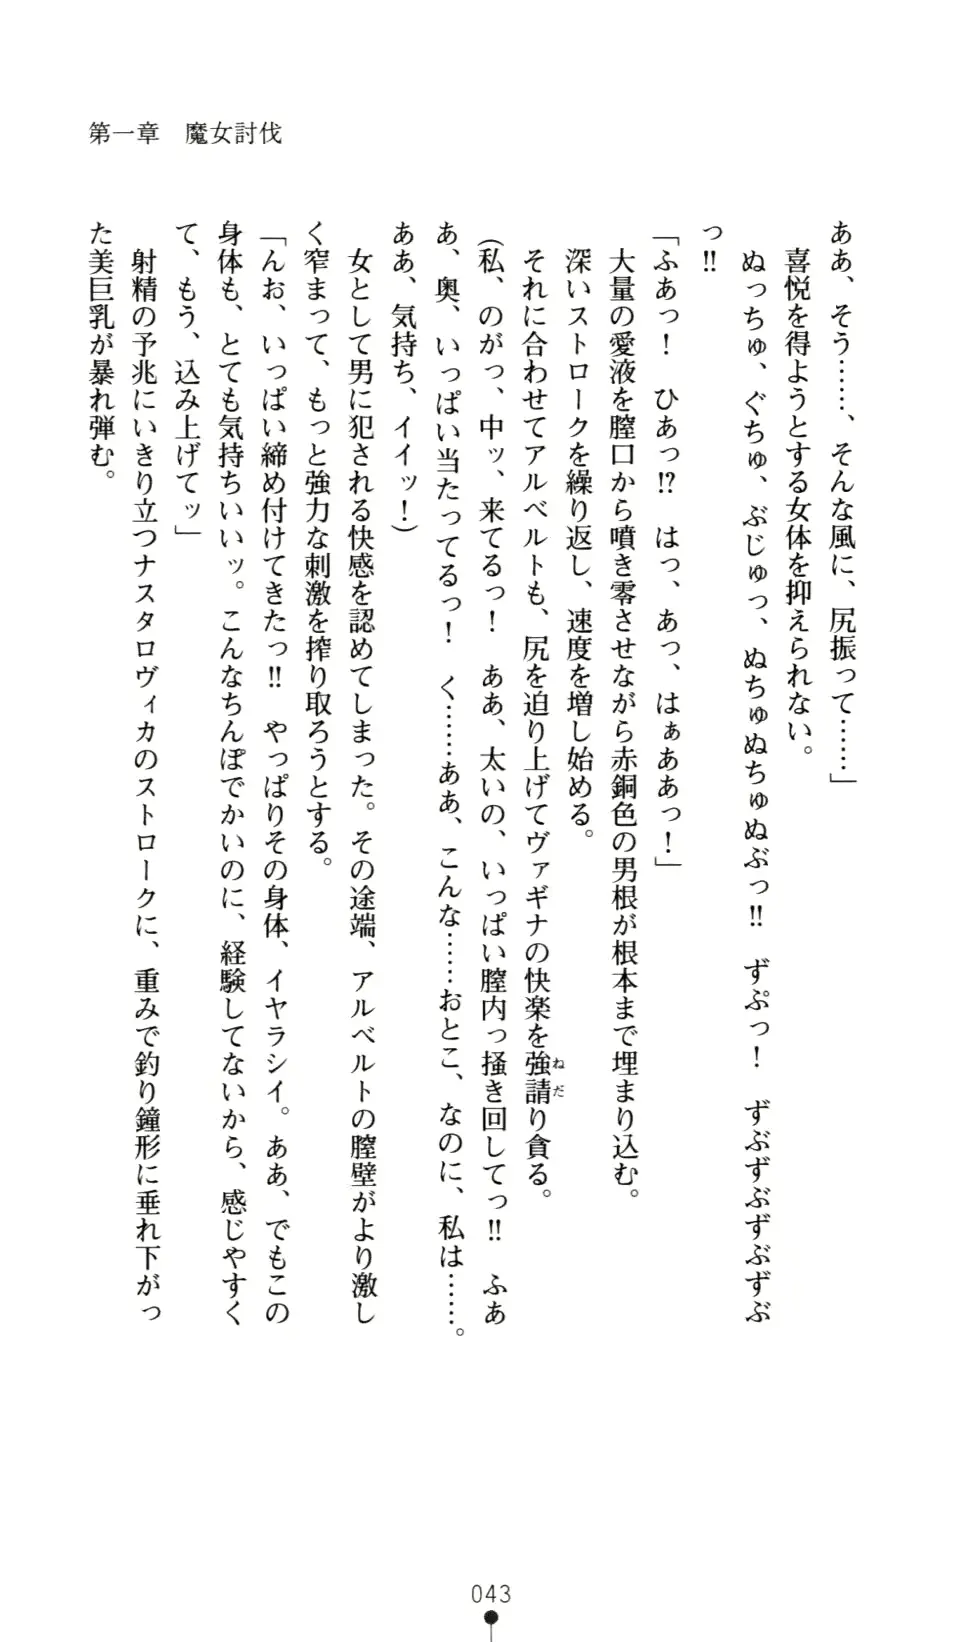 第一章　魔女討伐
ああ、そう……、そんな風に、尻振って……」
　喜悦を得ようとする女体を抑えられない。
　ぬっちゅ、ぐちゅ、ぶじゅっ、ぬちゅぬちゅぬぶっ!!　ずぷっ！　ずぶずぶずぶずぶ
っ!!
「ふあっ！　ひあっ!?　はっ、あっ、はぁああっ！」
　大量の愛液を膣口から噴き零させながら赤銅色の男根が根本まで埋まり込む。
　深いストロークを繰り返し、速度を増し始める。
　それに合わせてアルベルトも、尻を迫り上げてヴァギナの快楽を強請り貪る。
（私、のがっ、中ッ、来てるっ！　ああ、太いの、いっぱい膣内っ掻き回してっ!!　ふあ
あ、奥、いっぱい当たってるっ！　く……ああ、こんな……おとこ、なのに、私は……。
ああ、気持ち、イイッ！）
　女として男に犯される快感を認めてしまった。その途端、アルベルトの膣壁がより激し
く窄まって、もっと強力な刺激を搾り取ろうとする。
「んお、いっぱい締め付けてきたっ!!　やっぱりその身体、イヤラシイ。ああ、でもこの
身体も、とても気持ちいいッ。こんなちんぽでかいのに、経験してないから、感じやすく
て、もう、込み上げてッ」
　射精の予兆にいきり立つナスタロヴィカのストロークに、重みで釣り鐘形に垂れ下がっ
た美巨乳が暴れ弾む。
ねだ
043